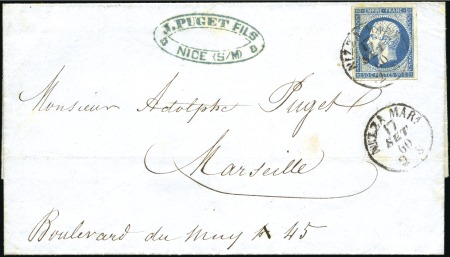 J. PUGET FILS
NICE (S/M)
EMPIRE FRANC
NIZZA
Monsieur Adolphe Puget
Marseille
NIZZA MARA
17
SET
60
Boulevard du muy 45